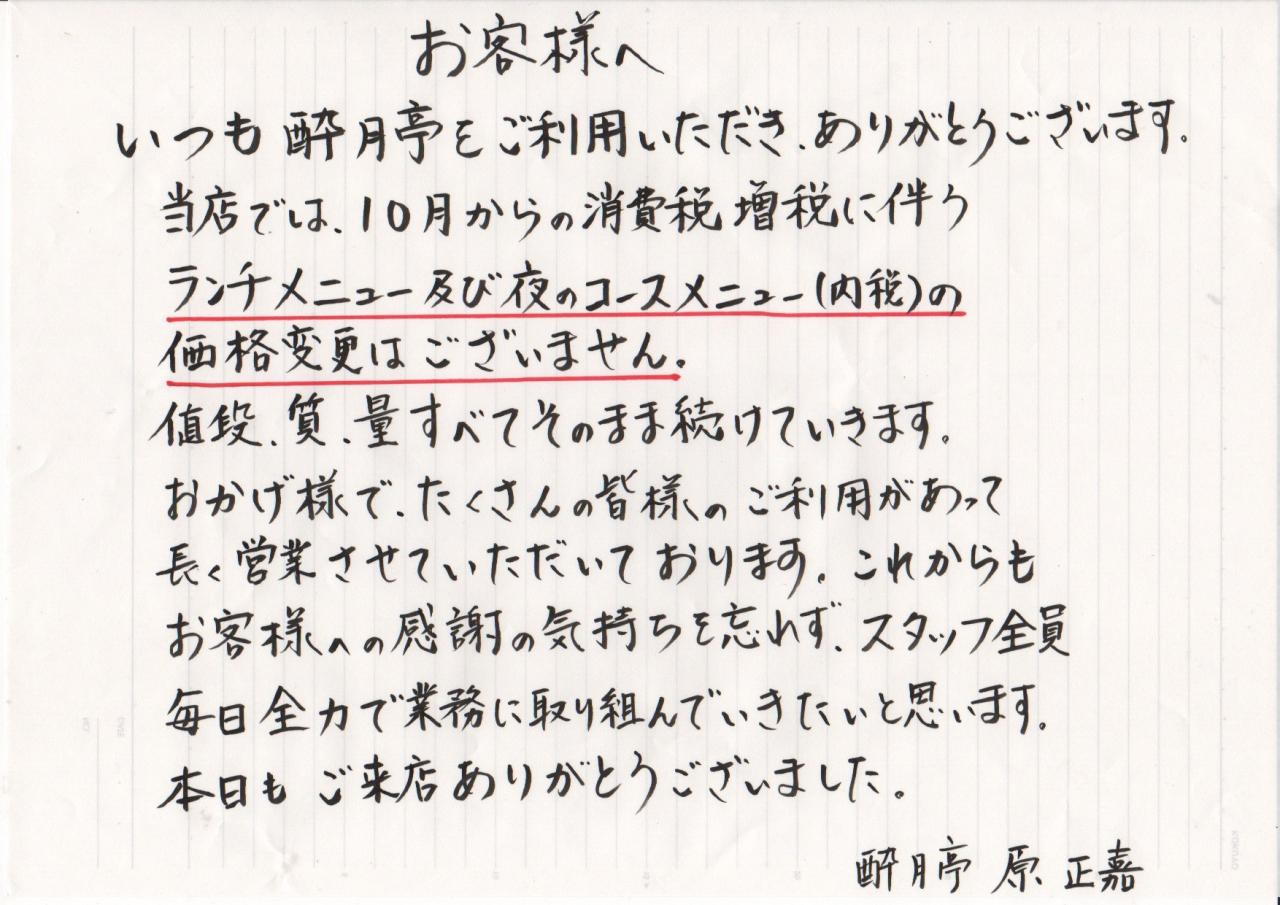 お客様へ
いつも酔月亭をご利用いただき、ありがとうございます。
当店では、10月からの消費税増税に伴う
ランチメニュー及び夜のコースメニュー(内税)の
価格変更はございません。
値段、質、量すべてそのまま続けていきます。
おかげ様で、たくさんの皆様のご利用があって
長く営業させていただいております。これからも
お客様への感謝の気持ちを忘れず、スタッフ全員
毎日全力で業務に取り組んでいきたいと思います。
本日もご来店ありがとうございました。
酔月亭 原 正嘉
NO.
DATE
KOKUYO